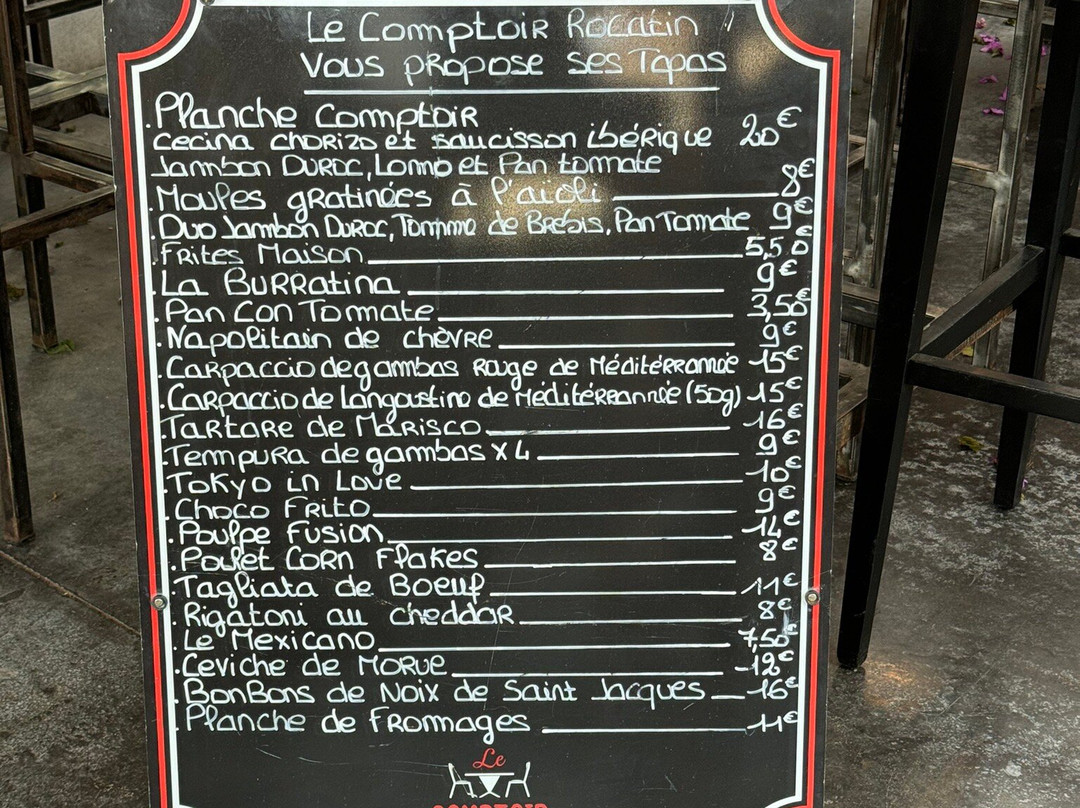 Le Comptoir Rocatin
Vous propose ses Tapas
.Planche Comptoir
Cecina chorizo et saucisson ibérique 20€
Jambon Duroc, Lomo et Pan tomate
.Moules gratinées à l'aioli 8€
.Duo Jambon Duroc, Tomme de Brebis, Pan Tomate 9€
.Frites Maison 5,50€
.La Burratina 9€
.Pan Con Tomate 3,50€
.Napolitain de chèvre 9€
.Carpaccio de gambas Rouge de Méditérrannée 15€
.Carpaccio de langoustine de Méditérrannée (50g) 15€
.Tartare de Marisco 16€
.Tempura de gambas x4 9€
.Tokyo in Love 10€
.Choco Frito 9€
.Poulpe Fusion 14€
.Poulet Corn Flakes 8€
.Tagliata de Boeuf 11€
.Rigatoni au cheddar 8€
.Le Mexicano 7,50€
.Ceviche de Morue 12€
.BonBons de Noix de Saint Jacques 16€
.Planche de Fromages 11€
Le
COMPTOIR